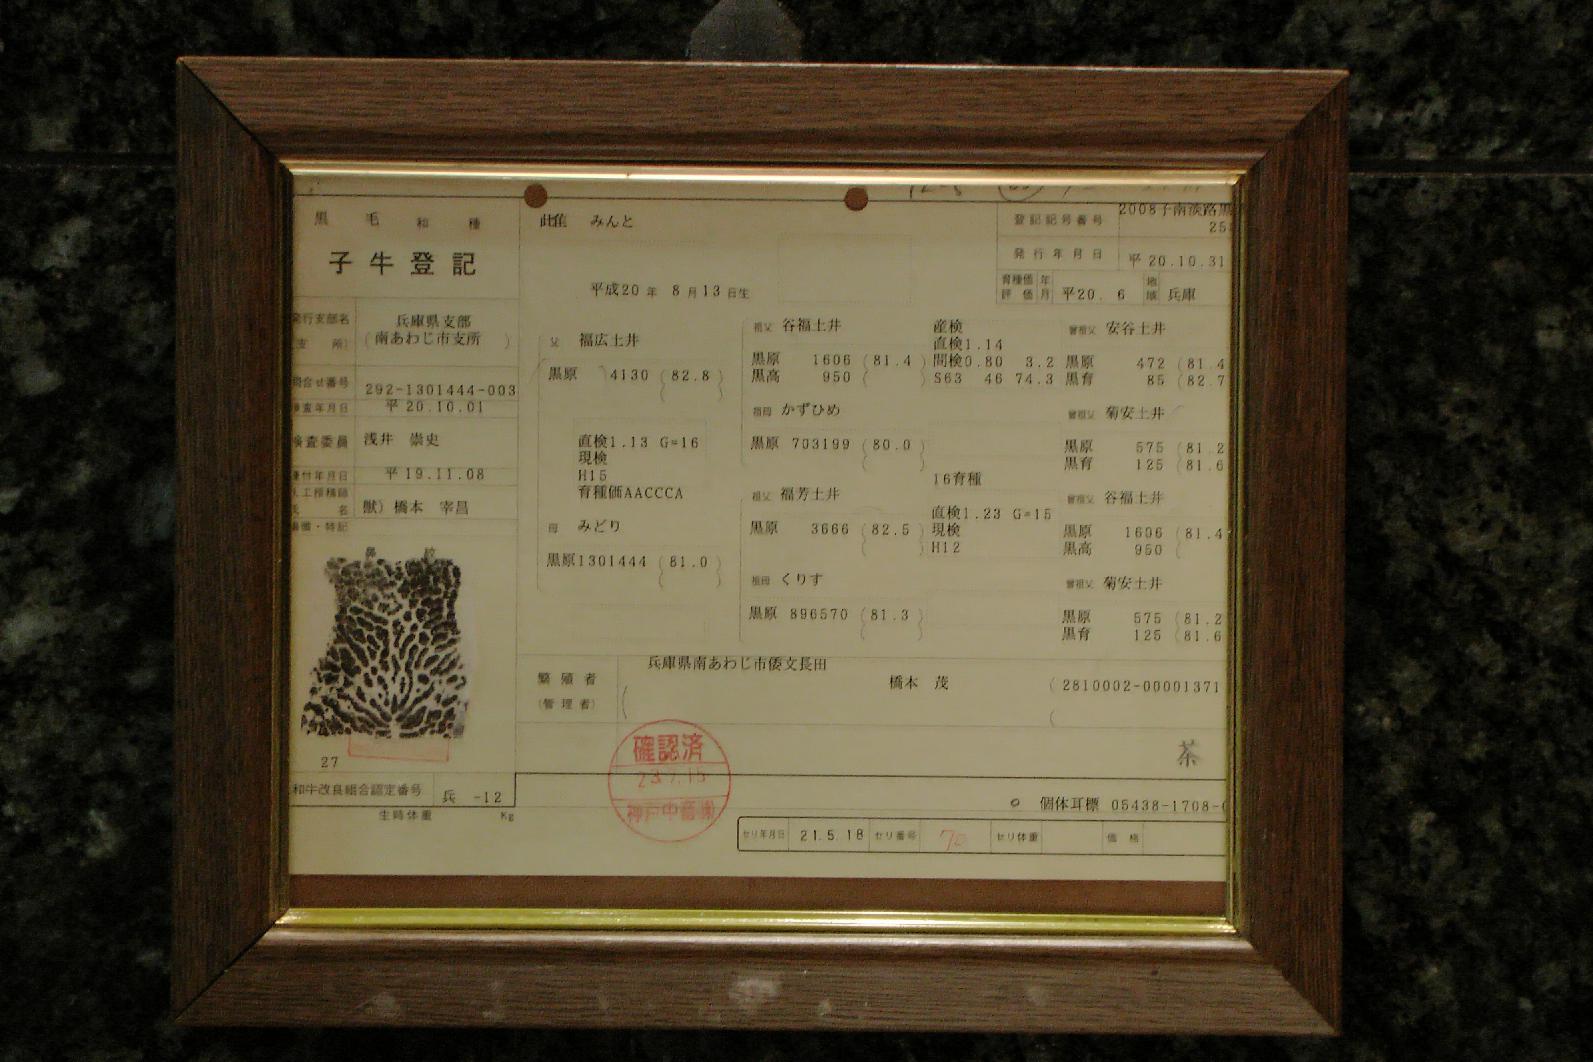 黒毛和種
子牛登記
雌 みんと
平成20年 8月13日生
登記記号番号 2008子南淡路黒
25
発行年月日 平20.10.31
育種価評価年月 平20. 6 地域 兵庫
発行支部名 兵庫県支部
(支所) (南あわじ市支所)
問合せ番号 292-1301444-003
検査年月日 平20.10.01
検査委員 浅井 崇史
種付年月日 平19.11.08
人工授精師氏名 獣) 橋本 宰昌
損徴・特記
鼻紋
27
和牛改良組合認定番号 兵 -12
生時体重 Kg
父 福広土井
黒原 4130 (82.8)
直検1.13 G=16
現検
H15
育種価AACCCA
母 みどり
黒原1301444 (81.0)
祖父 谷福土井
黒原 1606 (81.4)
黒高 950 ( )
産検
直検1.14
間検0.80 3.2
S63 46 74.3
祖母 かずひめ
黒原 703199 (80.0)
祖父 福芳土井
黒原 3666 (82.5)
16育種
直検1.23 G=15
現検
H12
祖母 くりす
黒原 896570 (81.3)
曽祖父 安谷土井
黒原 472 (81.4
黒育 85 (82.7
曽祖父 菊安土井
黒原 575 (81.2
黒育 125 (81.6
曽祖父 谷福土井
黒原 1606 (81.4
黒高 950 (
曽祖父 菊安土井
黒原 575 (81.2
黒育 125 (81.6
繁殖者
(管理者)
兵庫県南あわじ市倭文長田
橋本 茂 (2810002-00001371
茶
確認済
23.7.15
神戸中畜㈱
個体耳標 05438-1708-0
セリ年月日 21.5.18 セリ番号 70 セリ体重 価格